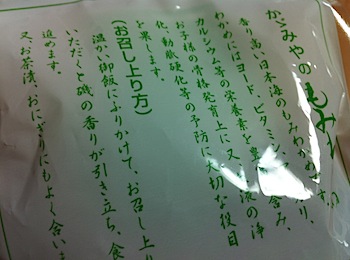 かゞみやのもみ
香り高い日本海のもみわかめ
わかめにはヨード、ビタミン 含み、
カルシウム等の栄養素を豊 液の浄
お子様の骨格発育上に又、
化、動脈硬化等の予防に大切な役目
を果します。
(お召し上り方)
温かい御飯にふりかけて、お召し上り
いただくと磯の香りが引き立ち、食
進めます。
又お茶漬、おにぎりにもよく合い